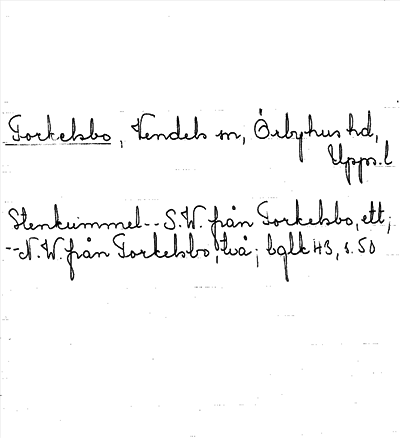 Torkelsbo, Vendels sn, Örbyhus hd,
Upps. l
Stenkummel-- S.W. från Torkelsbo, ett;
--N.W. från Torkelsbo, två; bglk 43, s. 50